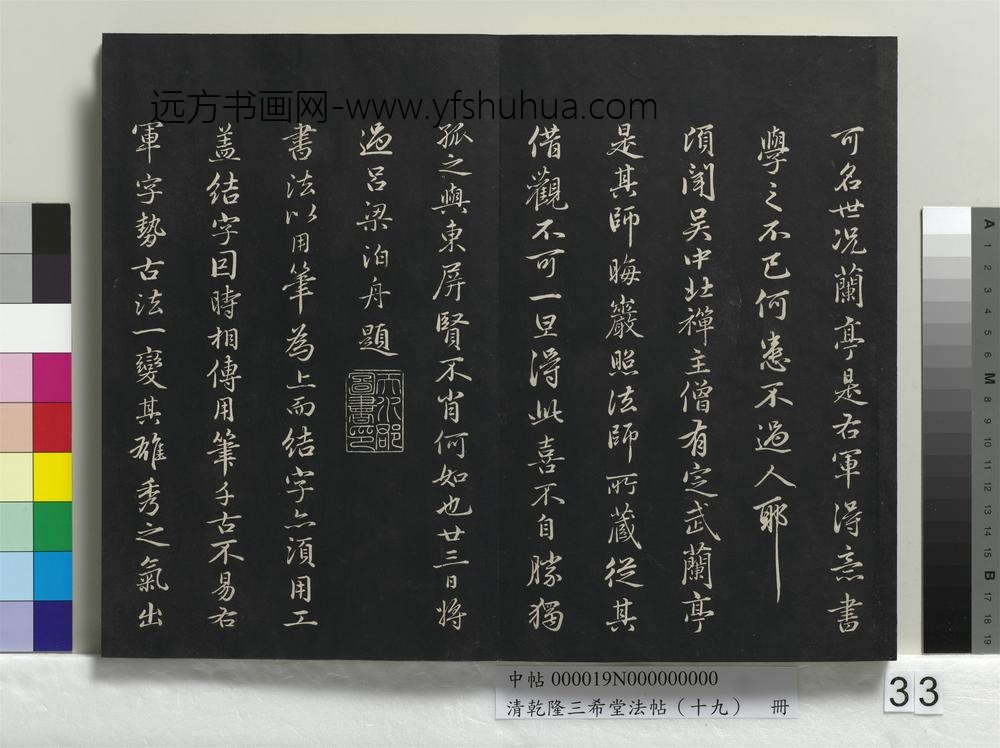 远方书画网-www.yfshuhua.com
可名世况蘭亭是右軍得意書
學之不已何患不過人耶
頃聞吳中北禪主僧有定武蘭亭
是其師晦巖照法師所藏從其
借觀不可一旦得此喜不自勝獨
孤之與東屏賢不肖何如也廿三日將
過呂梁泊舟題
書法以用筆為上而結字亦須用工
盖結字因時相傳用筆千古不易右
軍字勢古法一變其雄秀之氣出
中帖 000019N000000000
清乾隆三希堂法帖（十九） 冊
33
A 1 2 3 4 5 6 M 8 9 10 11 12 13 14 15 B 17 18 19